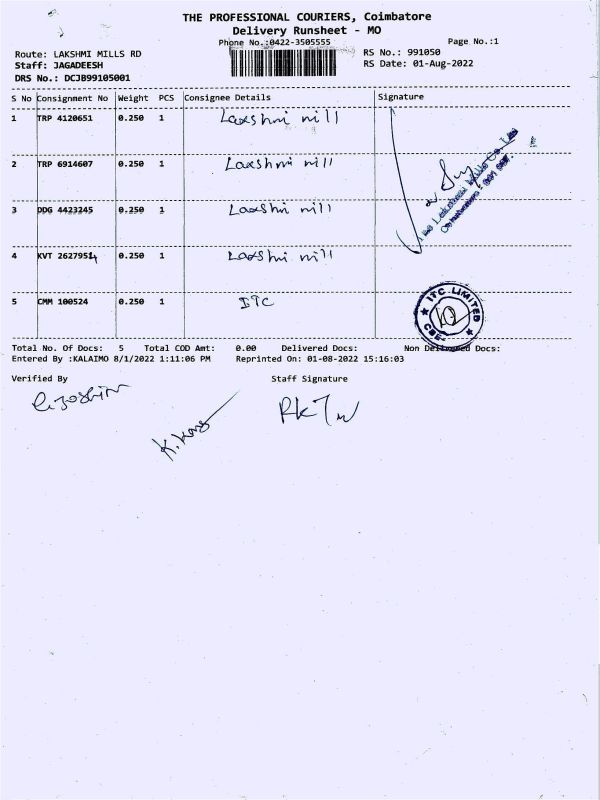 THE PROFESSIONAL COURIERS, Coimbatore
Delivery Runsheet - MO
Phone No.:0422-3505555 Page No.:1
Route: LAKSHMI MILLS RD RS No.: 991050
Staff: JAGADEESH RS Date: 01-Aug-2022
DRS No.: DCJB99105001
S No Consignment No Weight PCS Consignee Details Signature
1 TRP 4120651 0.250 1 Laxshmi mill
2 TRP 6914607 0.250 1 Laxshmi mill
3 DDG 4423245 0.250 1 Laxshmi mill
4 KVT 2627951 0.250 1 Laxshmi mill
5 CMM 100524 0.250 1 ITC
ITC LIMITED
CBE.
Total No. Of Docs: 5 Total COD Amt: 0.00 Delivered Docs: Non Delivered Docs:
Entered By :KALAIMO 8/1/2022 1:11:06 PM Reprinted On: 01-08-2022 15:16:03
Verified By Staff Signature